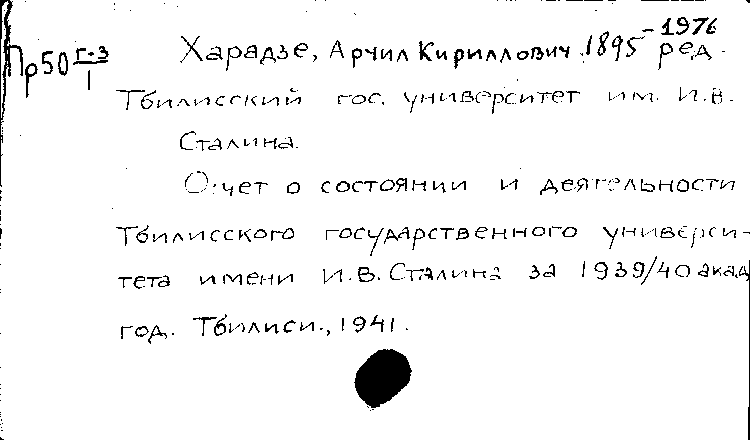 Пр50 г-з/1
Харадзе, Арчил Кириллович, 1895-1976 ред.
Тбилисский гос. университет им. И.В.
Сталина.
Отчет о состоянии и деятельности
Тбилисского государственного универси-
тета имени И.В. Сталина за 1939/40 акад
год. Тбилиси., 1941.